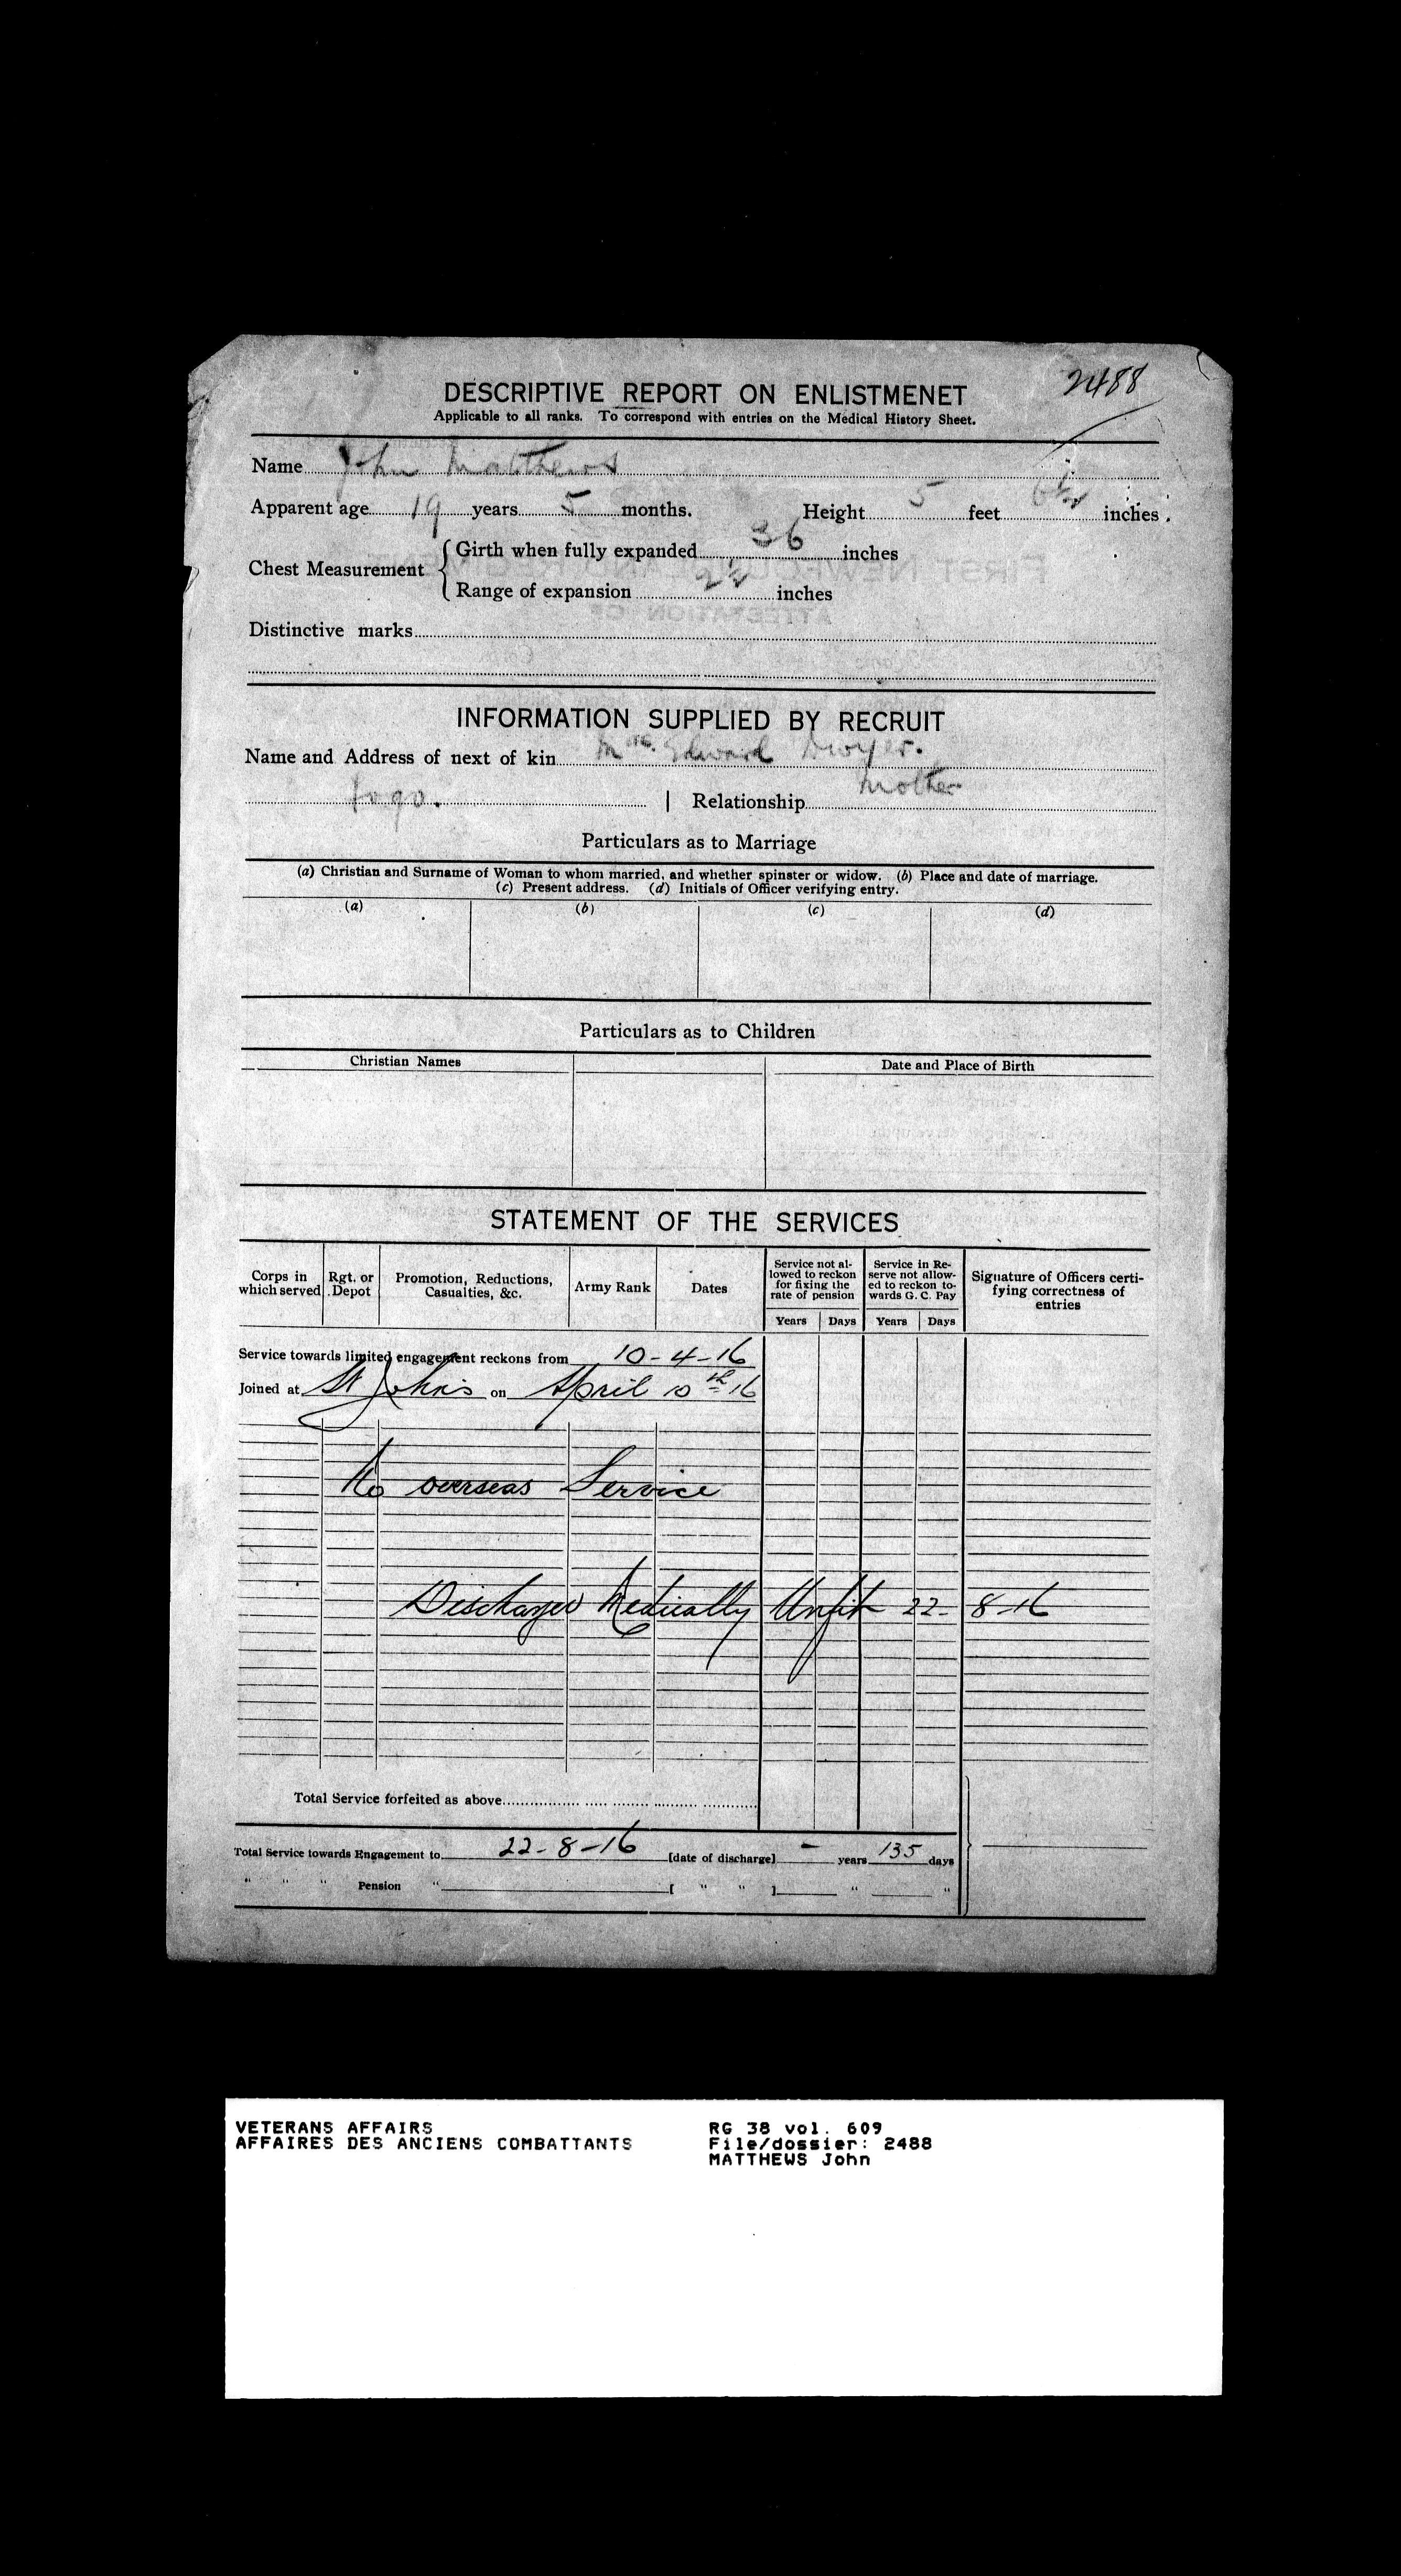 2488
DESCRIPTIVE REPORT ON ENLISTMENET
Applicable to all ranks. To correspond with entries on the Medical History Sheet.
Name John Matthews
Apparent age 19 years 5 months. Height 5 feet 6½ inches.
Chest Measurement { Girth when fully expanded 36 inches
Range of expansion 2½ inches
Distinctive marks
INFORMATION SUPPLIED BY RECRUIT
Name and Address of next of kin Mrs. Edward Dwyer.
Fogo. | Relationship Mother
Particulars as to Marriage
(a) Christian and Surname of Woman to whom married, and whether spinster or widow. (b) Place and date of marriage.
(c) Present address. (d) Initials of Officer verifying entry.
(a) (b) (c) (d)
Particulars as to Children
Christian Names Date and Place of Birth
STATEMENT OF THE SERVICES
Corps in which served Rgt. or Depot Promotion, Reductions, Casualties, &c. Army Rank Dates Service not allowed to reckon for fixing the rate of pension Service in Reserve not allowed to reckon towards G. C. Pay Signature of Officers certifying correctness of entries
Years Days Years Days
Service towards limited engagement reckons from 10-4-16
Joined at St John's on April 10th 16
No overseas Service
Discharged Medically Unfit 22-8-16
Total Service forfeited as above
Total Service towards Engagement to 22-8-16 [date of discharge] – years 135 days
" " " Pension " [ " " ] " "
VETERANS AFFAIRS RG 38 vol. 609
AFFAIRES DES ANCIENS COMBATTANTS File/dossier: 2488
MATTHEWS John